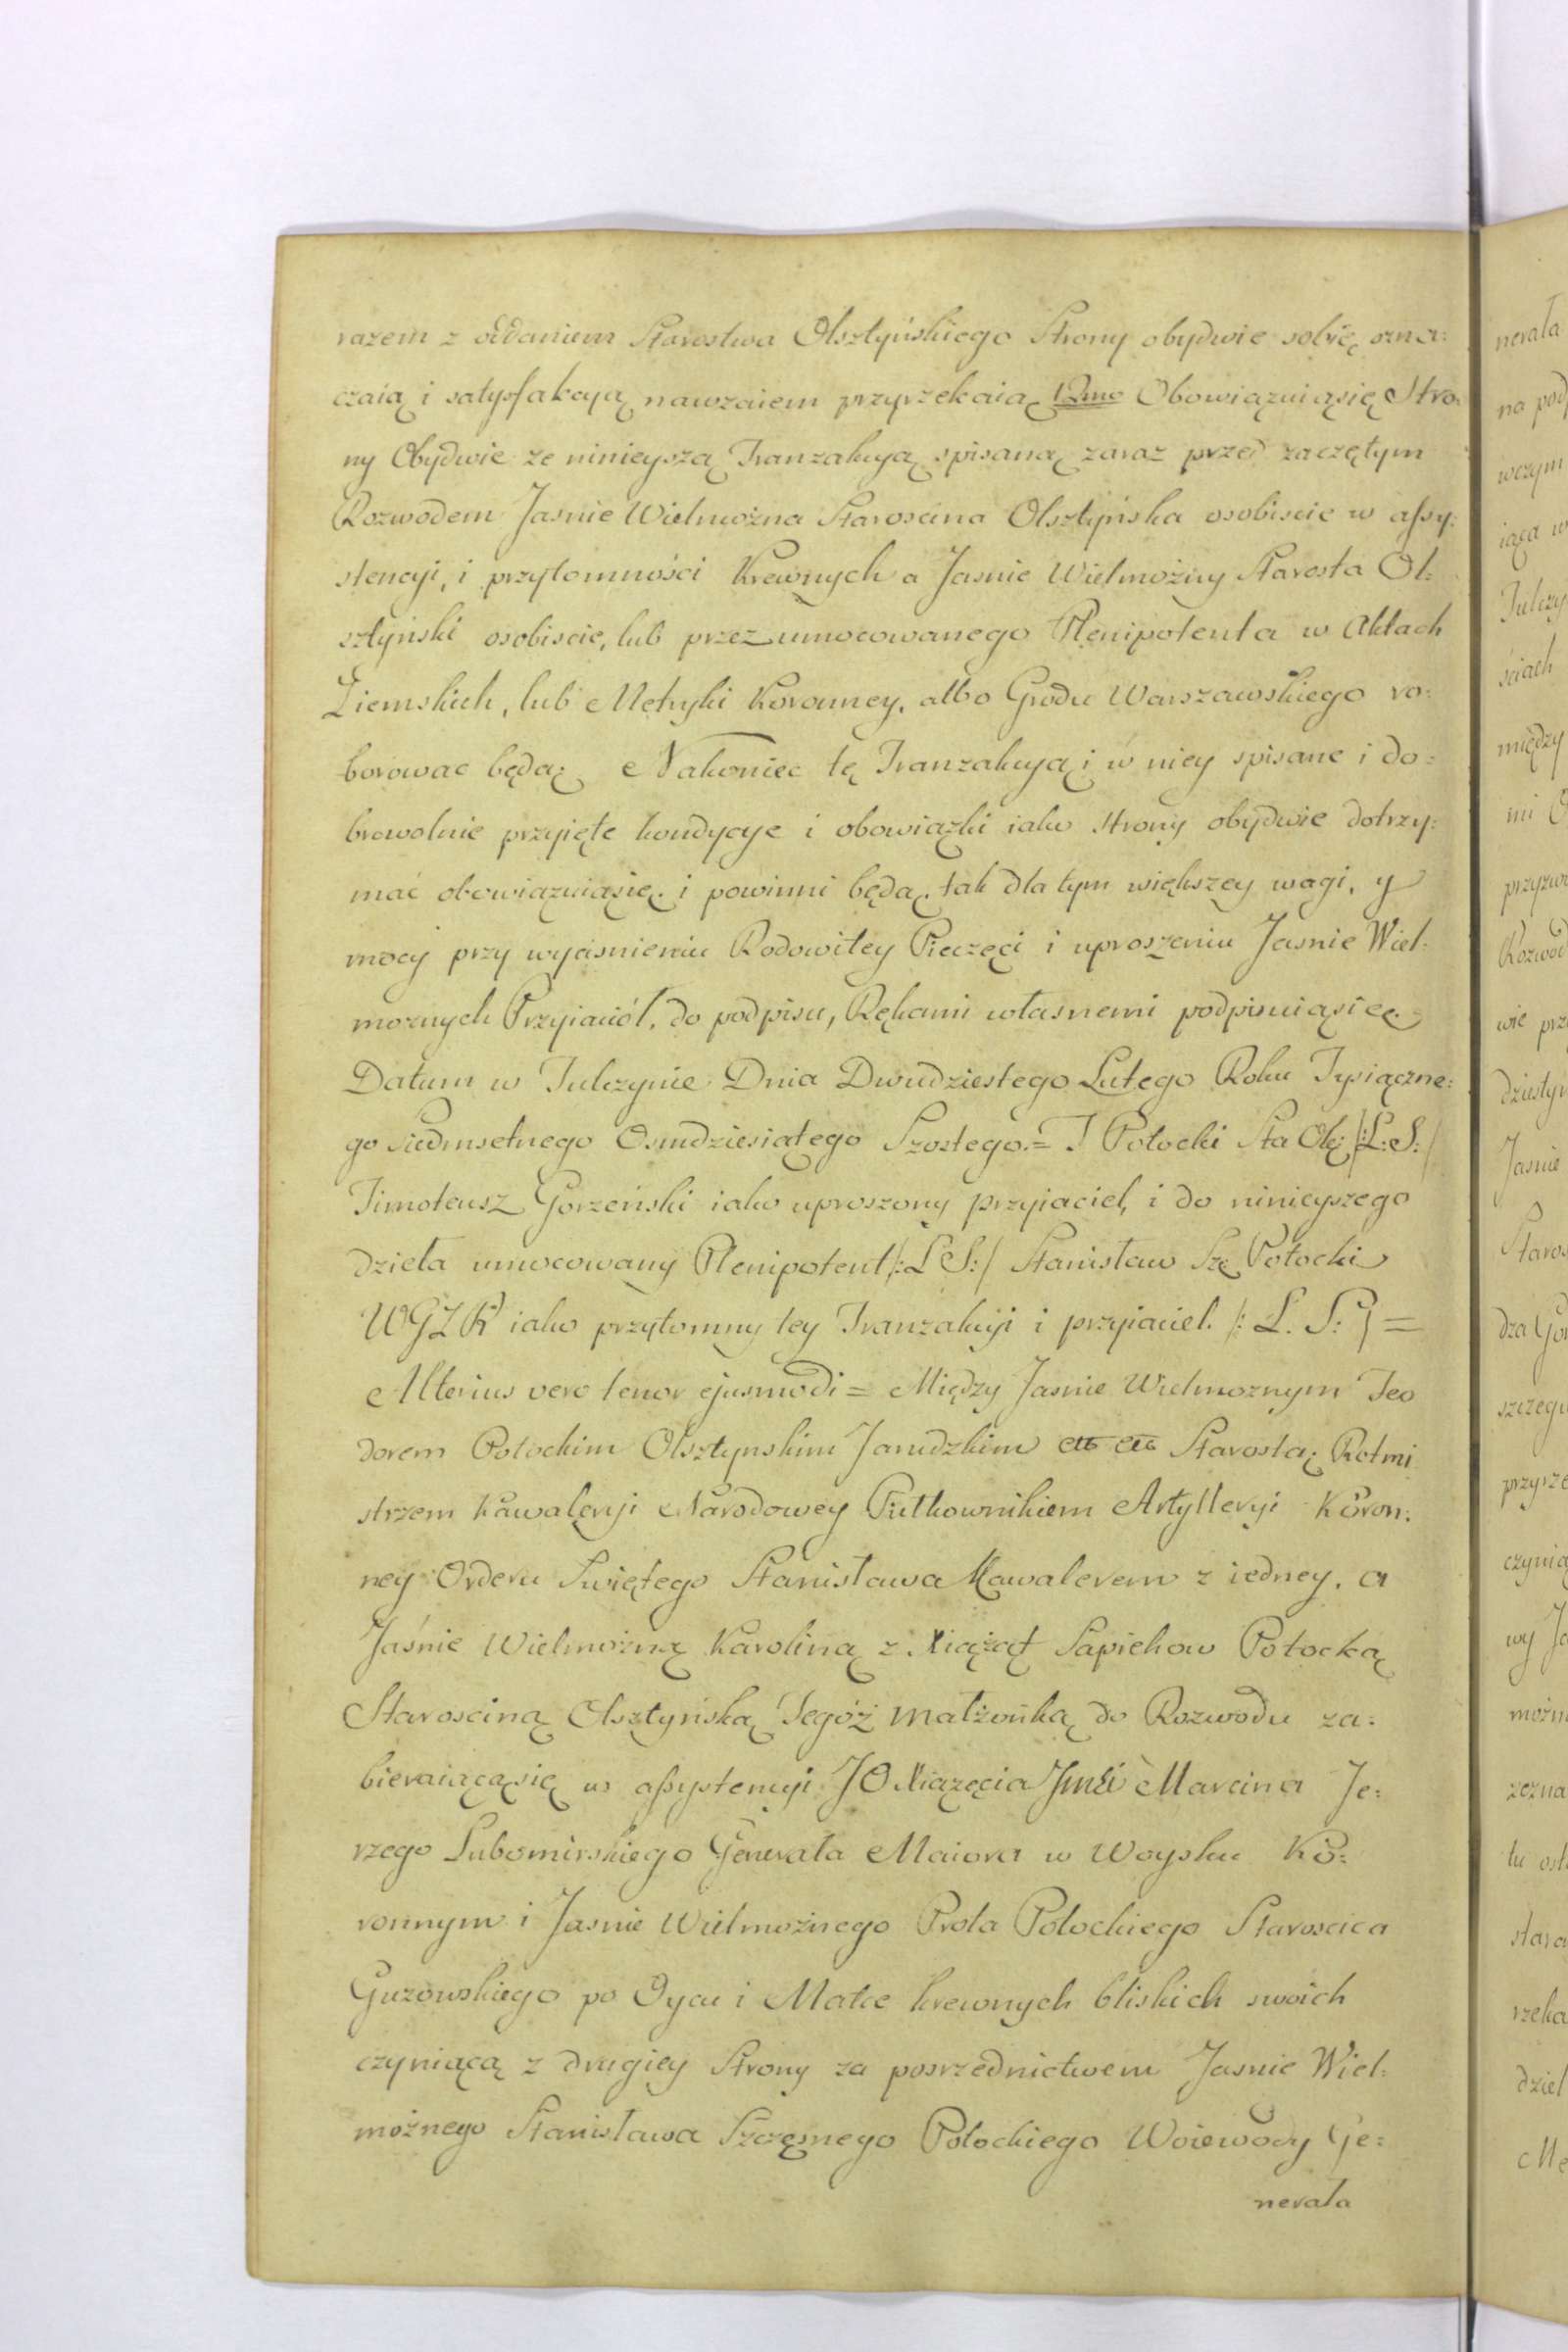 razem z oddaniem Starostwa Olsztyńskiego Strony obydwie sobie ozna:
czaią i satysfakcyą nawzaiem przyrzekaią 12mo Obowiązuiąsię Stro
ny Obydwie ze ninieyszą Tranzakcyą spisaną zaraz przed zaczętym
Rozwodem Jasnie Wielmożna Staroscina Olsztyńska osobiscie w assy:
stencyi, i przytomności Krewnych a Jasnie Wielmożny Starosta Ol:
sztyński osobiscie, lub przez umocowanego Plenipotenta w Aktach
Ziemskich, lub Metryki Koronney, albo Grodu Warszawskiego ro:
borowac będą. Nakoniec tę Tranzakcyą i w niey spisane i do:
browolnie przyięte kondycye i obowiązki iako strony obydwie dotrzy:
mać obowiązuiąsię i powinni będą, tak dla tym większey wagi, y
mocy przy wyciśnieniu Rodowitey Pieczęci i uproszeniu Jasnie Wiel:
moznych Przyiaciół, do podpisu, Rękami własnemi podpisuiąsię.
Datum w Tulczynie Dnia Dwudziestego Lutego Roku Tysiączne:
go siedmsetnego Osmdziesiątego Szostego.= T Potocki Sta Ol: /:L:S:/
Timoteusz Gorzeński iako uproszony przyiaciel, i do ninieyszego
dzieła umocowany Plenipotent /:L S:/ Stanisław Szę Potocki
WGZR iako przytomny tey Tranzakcyi i przyiaciel. /: L. S:/ =
Alterius vero tenor ejusmodi = Między Jasnie Wielmoznym Teo
dorem Potockim Olsztynskim Jarudzkim etc etc Starostą Rotmi
strzem Kawaleryi Narodowey Pułkownikiem Artylleryi Koron:
ney Orderu Swiętego Stanisława Kawalerem z iedney, a
Jaśnie Wielmożną Karoliną z Xiążąt Sapiehow Potocką
Staroscina Olsztyńską Tegóż Małżonką do Rozwodu za:
bieraiącąsię w assystencyi JO Xiązęcia Jmći Marcina Je:
rzego Lubomirskiego Generała Maiora w Woysku Ko:
ronnym i Jasnie Wielmożnego Prota Potockiego Staroscica
Guzowskiego po Oycu i Matce krewnych bliskich swoich
czyniącą z drugiey Strony za posrzednictwem Jasnie Wiel:
możnego Stanisława Szczęsnego Potockiego Woiewody Ge:
nerała